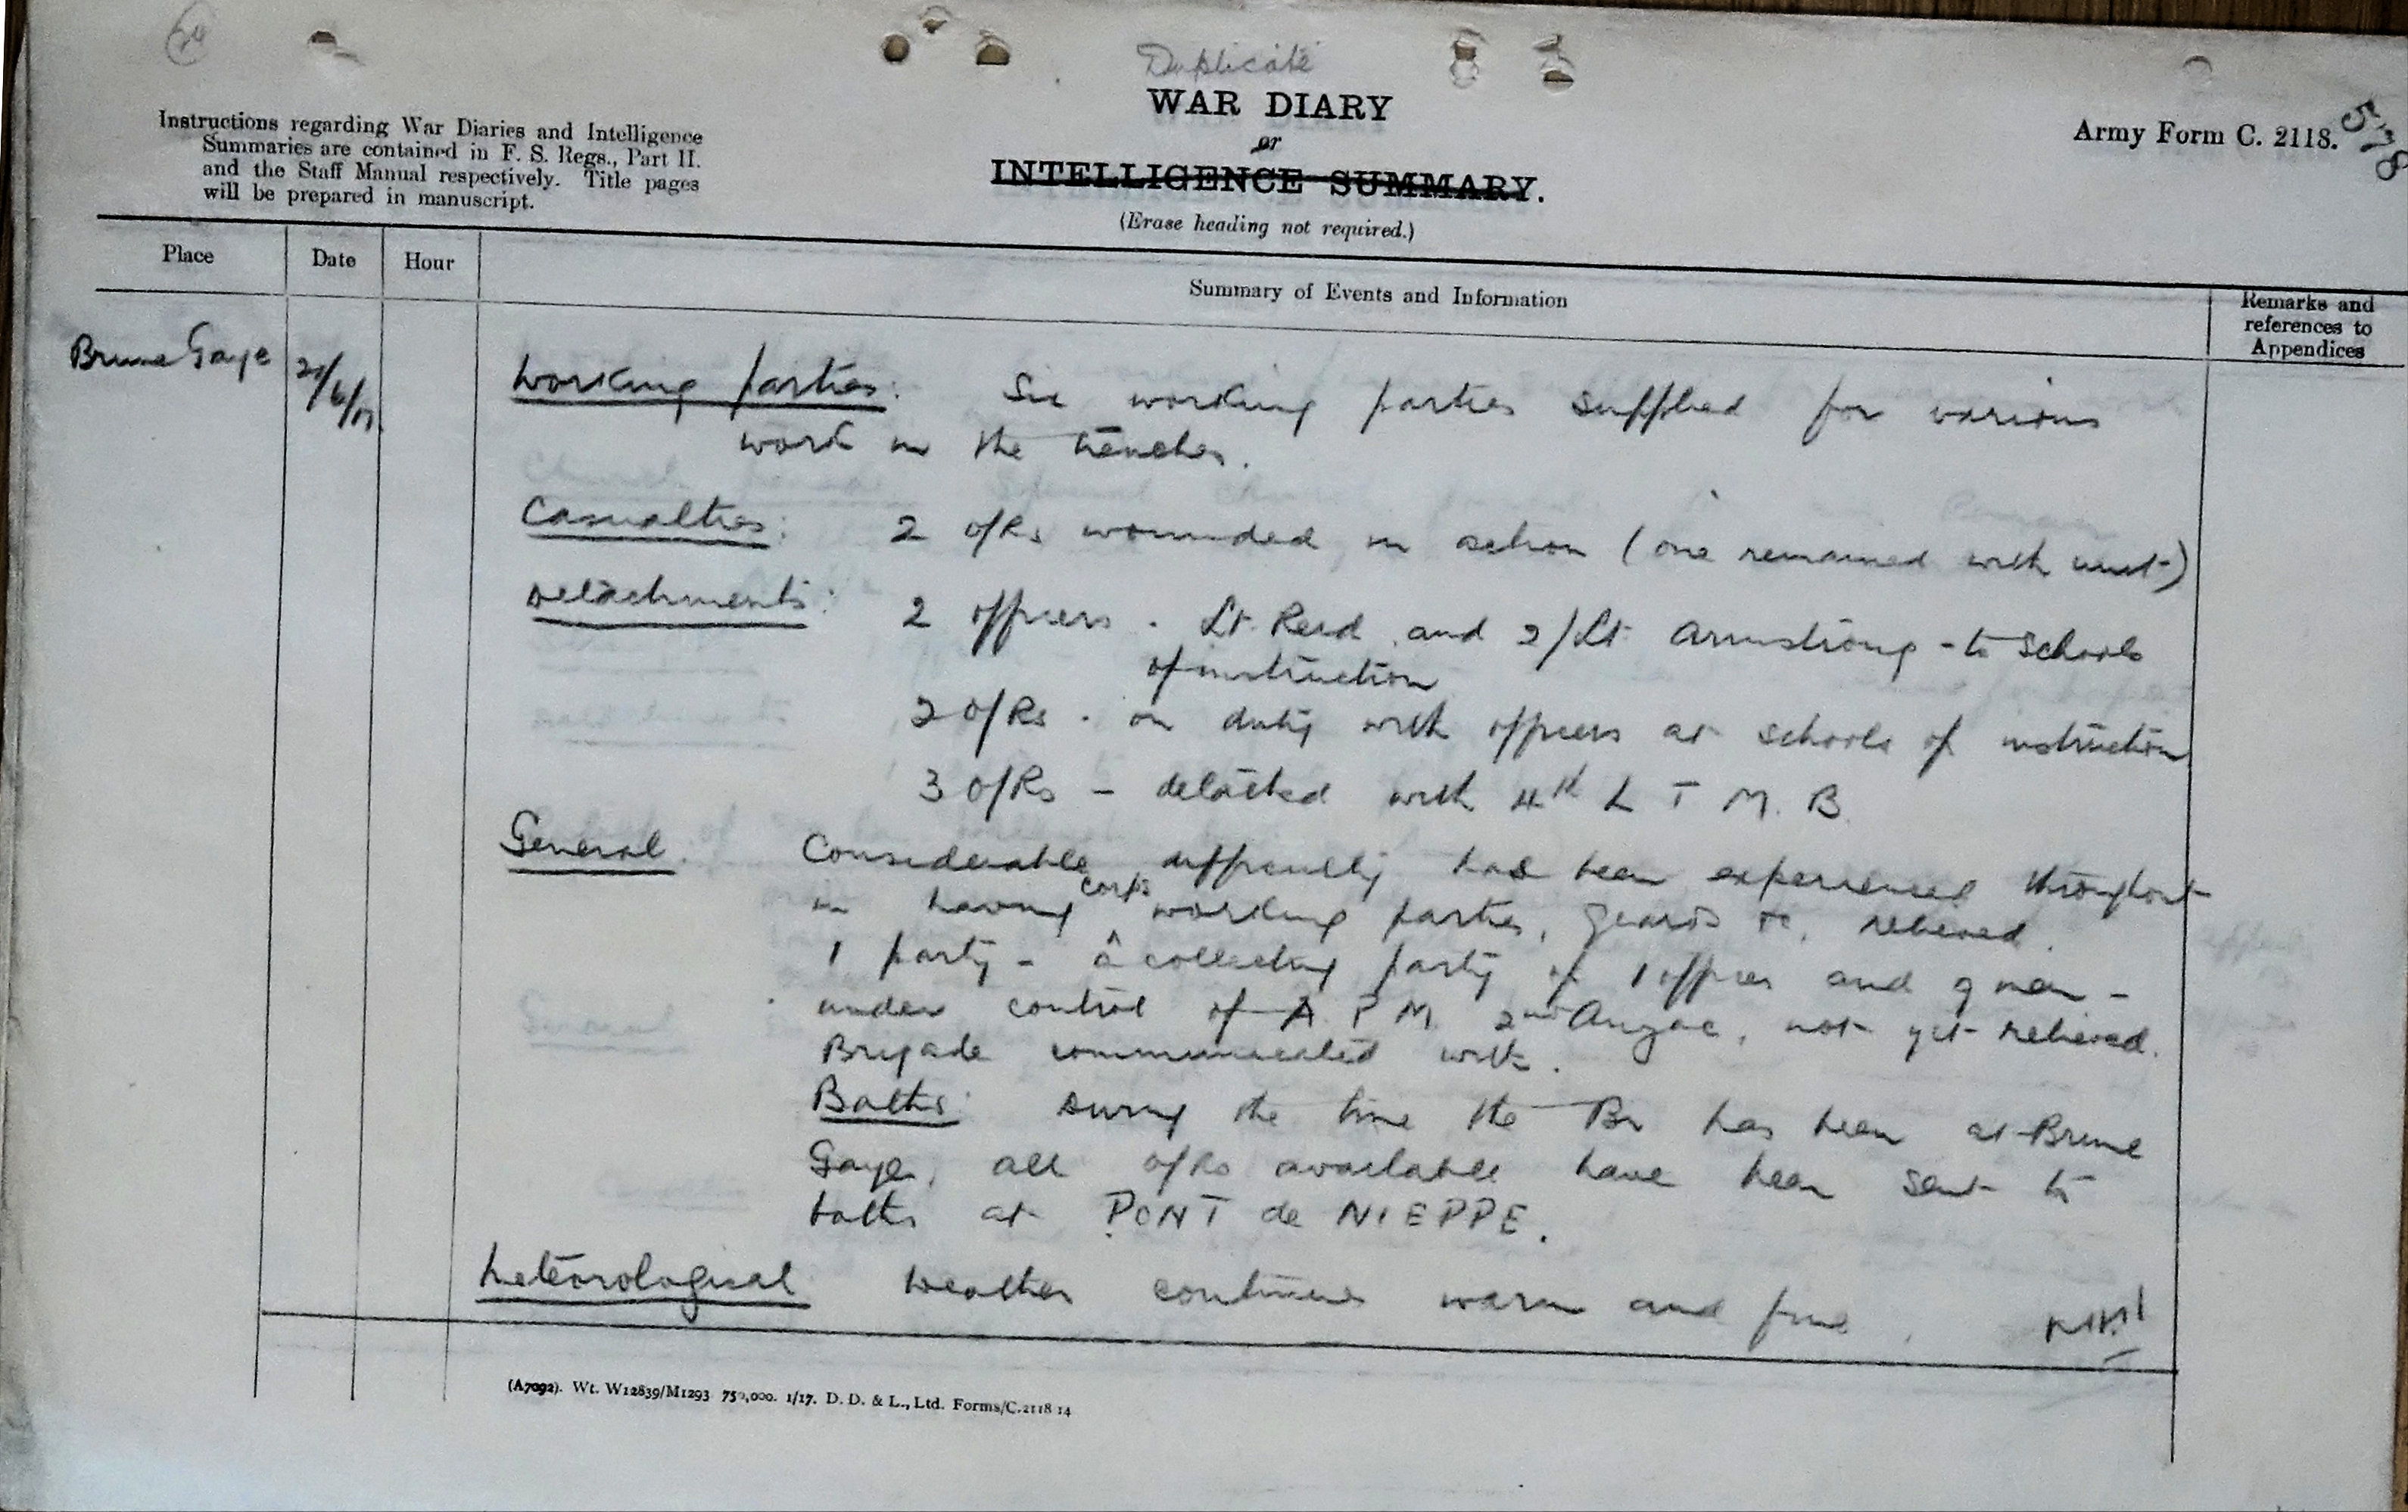 Duplicate
WAR DIARY
or
INTELLIGENCE SUMMARY.
(Erase heading not required.)
Instructions regarding War Diaries and Intelligence
Summaries are contained in F. S. Regs., Part II.
and the Staff Manual respectively. Title pages
will be prepared in manuscript.
Army Form C. 2118.
578
Place
Date
Hour
Summary of Events and Information
Remarks and
references to
Appendices
Brune Gaye
Working parties: Six working parties supplied for various
work in the trenches.
Casualties: 2 o/Rs wounded in action (one remained with unit)
Detachments: 2 officers . Lt. Reid and 2/Lt Armstrong - to schools
of instruction
2 o/Rs . on duty with officers at schools of instruction
3 o/Rs - detached with 4th L T M. B
General. Considerable difficulty has been experienced throughout
in having corps working parties, guards &c, relieved.
1 party - a collecting party of 1 officer and 9 men -
under control of A. P. M. 2nd Anzac, not yet relieved.
Brigade communicated with.
Baths: During the time the Bn has been at Brune
Gaye, all o/Rs available have been sent to
baths at PONT de NIEPPE.
Meteorological Weather continues warm and fine.
(A7092). Wt. W12839/M1293 750,000. 1/17. D. D. & L., Ltd. Forms/C.2118 14